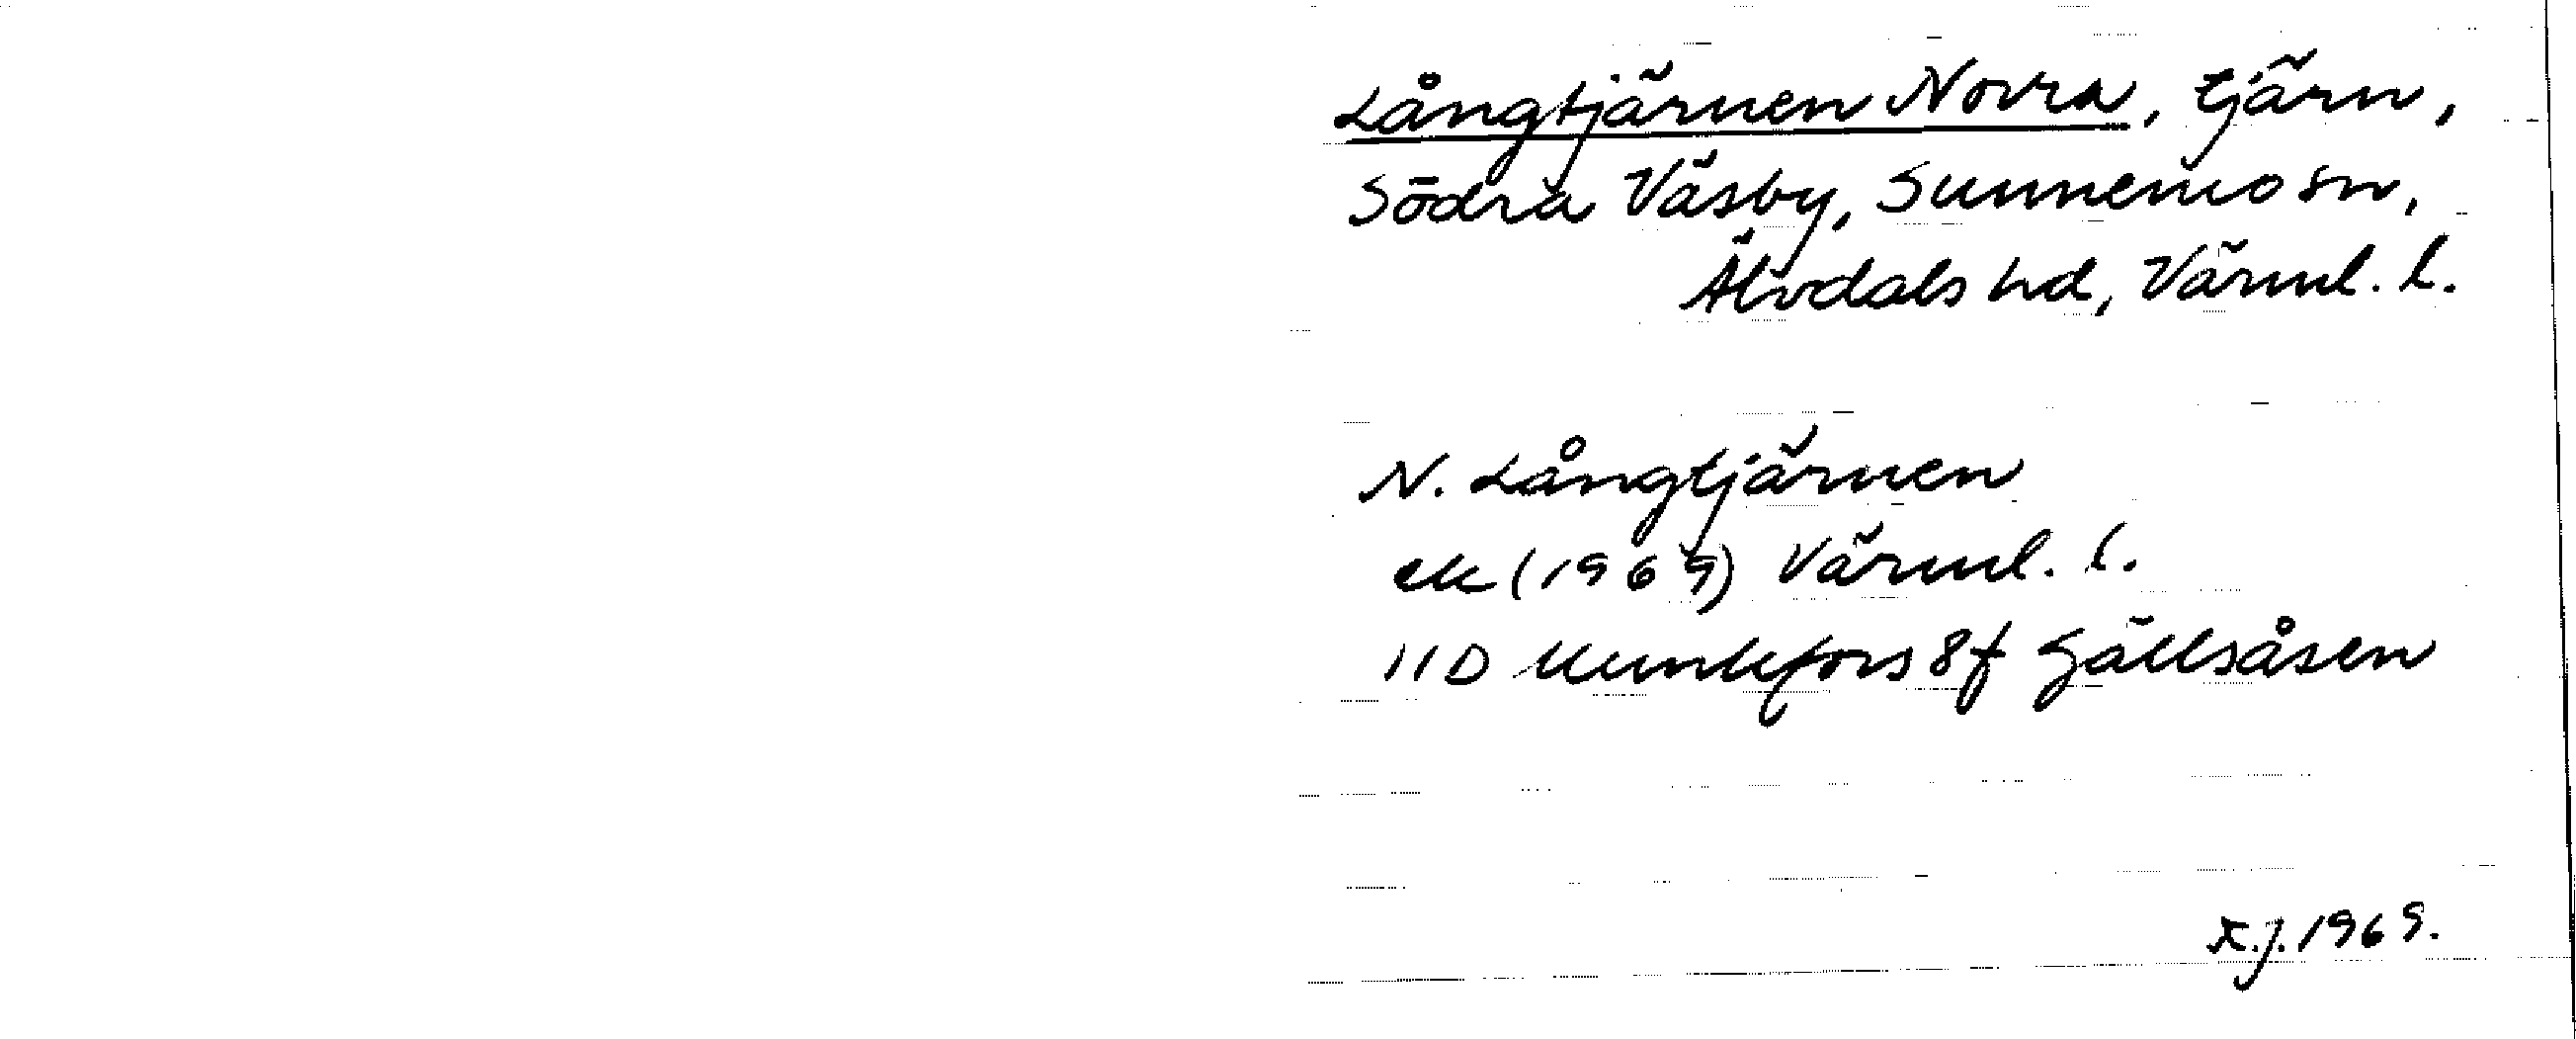 Långtjärnen Norra, tjärn,
Södra Väsby, Sunnemo sn,
Älvdals hd, Värml. l.
N. Långtjärnen
ek (1969) Värml. l.
11D Munkfors 8f Gällsåsen
K.J. 1969.